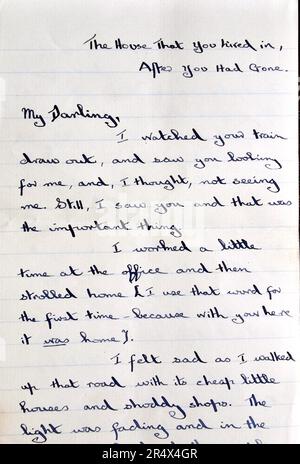 The House That You Lived in,
After You Had Gone.
My Darling,
I watched your train
draw out, and saw you looking
for me, and, I thought, not seeing
me. Still, I saw you and that was
the important thing.
I worked a little
time at the office and then
strolled home [I use that word for
the first time - because with you here
it was home].
I felt sad as I walked
up that road with its cheap little
houses and shoddy shops. The
light was fading and in the
alamy
Image ID: 2R4X4GR
www.alamy.com